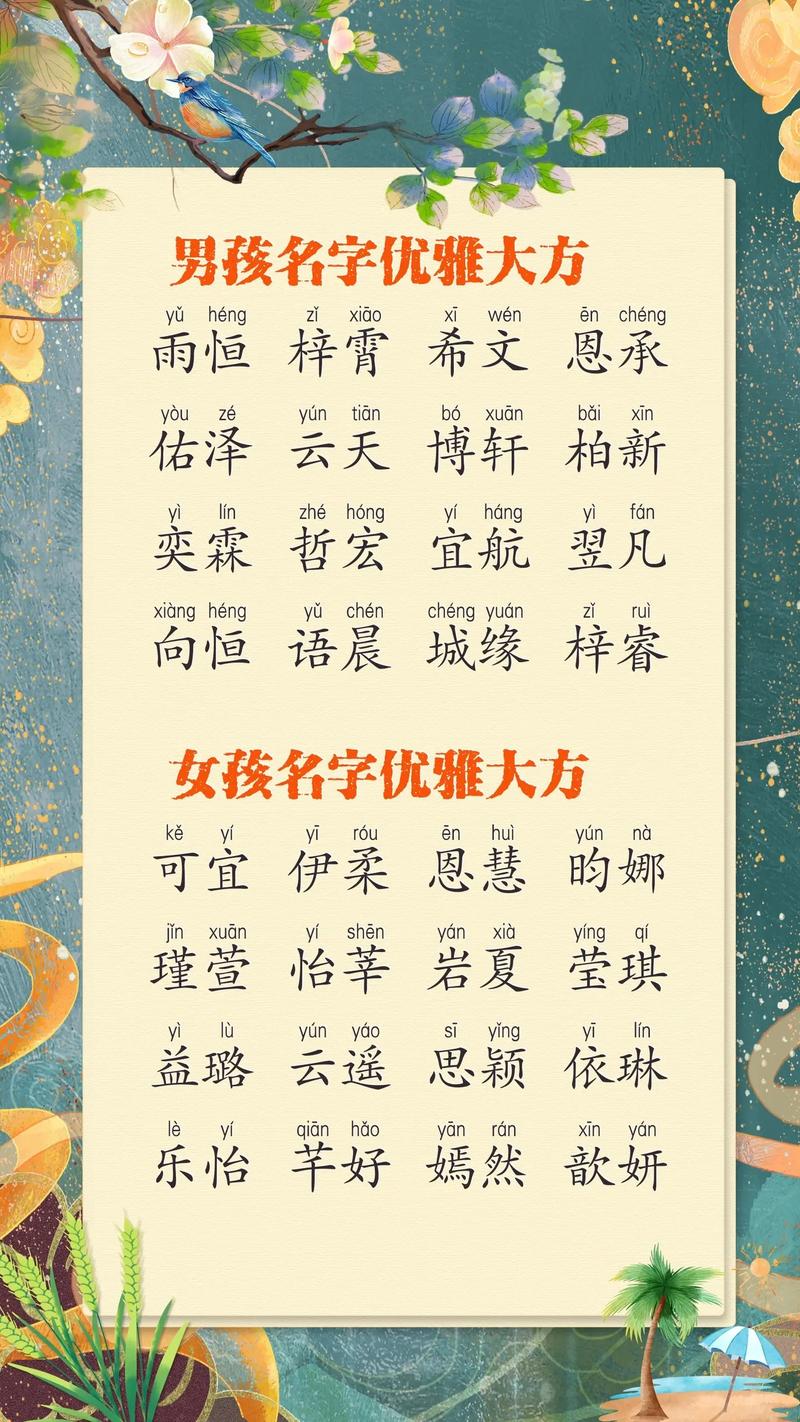 男孩名字优雅大方
yǔ héng zǐ xiāo xī wén ēn chéng
雨恒 梓霄 希文 恩承
yòu zé yún tiān bó xuān bǎi xīn
佑泽 云天 博轩 柏新
yì lín zhé hóng yí háng yì fán
奕霖 哲宏 宜航 翌凡
xiàng héng yǔ chén chéng yuán zǐ ruì
向恒 语晨 城缘 梓睿
女孩名字优雅大方
kě yí yī róu ēn huì yún nà
可宜 伊柔 恩慧 昀娜
jǐn xuān yí shēn yán xià yíng qí
瑾萱 怡莘 岩夏 莹琪
yì lù yún yáo sī yǐng yī lín
益璐 云遥 思颖 依琳
lè yí qiān hǎo yān rán xīn yán
乐怡 芊好 嫣然 歆妍